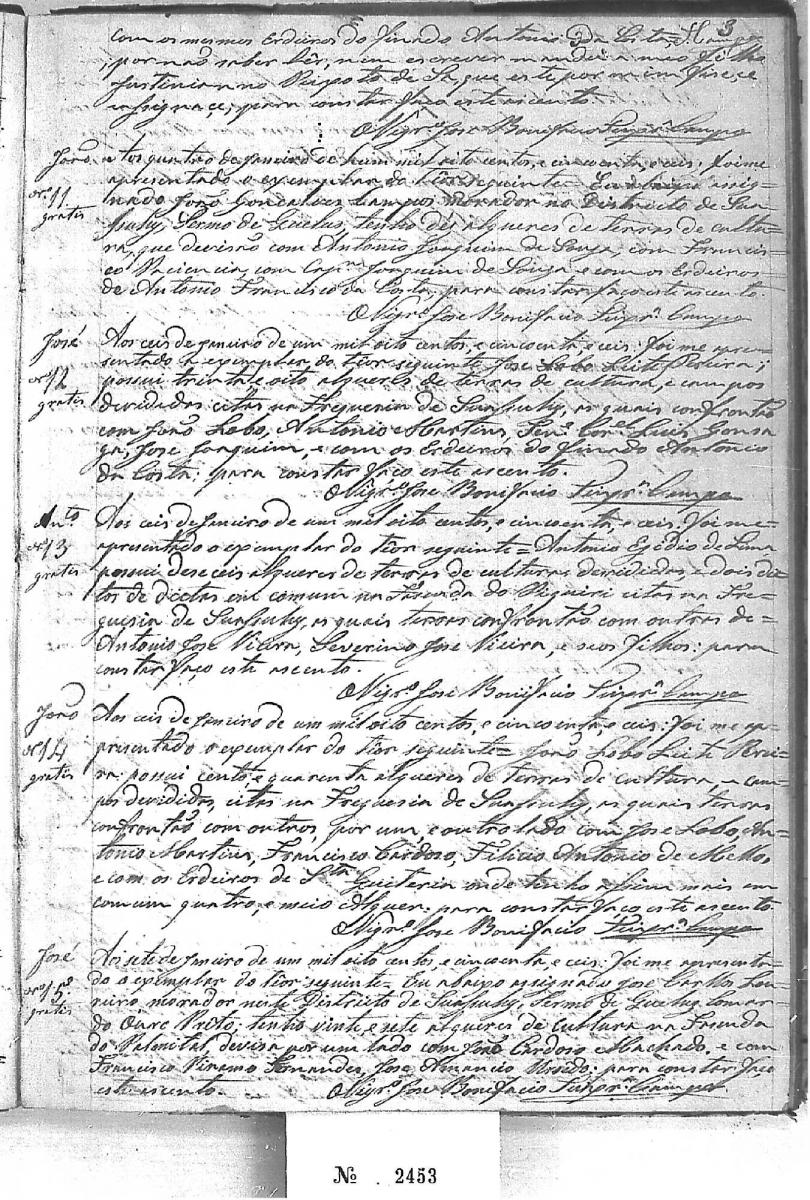 3
com os mesmos Erdeiros do finado Antonio da Costa,
por não saber lêr, nem escrever mandei a meu filho
Justiniano Rapozo de Sá, que este por mim fisese,
assignaçe, para constar faço este ascento.
O Vigr.º Jose Bonifacio
João
nº 11
gratis
Aos quatro de janeiro de hum mil oito centos, e cincoenta, e ceis: foi me
apresentado o exemplar do tiôr seguinte = Eu abaixo assig-
nado João Gonçalves Campos morador no Districto de Sua-
suhy, Termo de Quelus, tenho dés alqueres de terras de cultu-
ra, que devisão com Antonio Joaquim de Souza, com Francis-
co Paciencia, com Cap.m Joaquim de Souza, e com os Erdeiros
de Antonio Francisco da Costa, para constar faço este ascento.
O Vigr.º Jose Bonifacio
José
nº 12
gratis
Aos ceis de janeiro de um mil oito centos, e cincoenta, e ceis: foi me apre-
sentado o exemplar do tiôr seguinte Jose Lobo Leite Pereira;
possui trinta e oito alqueres de terras de cultura, e campos
devididas citas na Freguesia de Suassuhy, as quais confrontão
com João Lobo, Antonio Martins, Ten.e Cor.el Luis Gonsa-
ga, Jose Joaquim, e com os Erdeiros do finado Antonio
da Costa: para constar faço este ascento.
O Vigr.º Jose Bonifacio
Ant.º
nº 13
gratis
Aos ceis de janeiro de um mil oito centos, e cincoenta, e ceis. Foi me
apresentado o exemplar do tiôr seguinte = Antonio Egidio de Lima
possui deseceis alqueres de terras de culturas devididas, e dois di-
tos de dictas em comum na Fasenda do Piquiri citas na Fre-
guesia de Suassuhy, as quais terras confrontão com outras de
Antonio Jose Vieira, Severino Jose Vieira, e seus filhos: para
constar faço este ascento.
O Vigr.º Jose Bonifacio
João
nº 14
gratis
Aos ceis de janeiro de um mil oito centos, e cincoenta, e ceis: foi me ap-
presentado o exemplar do tiôr seguinte = João Lobo Leite Perei-
ra: possui cento e quarenta alqueres de terras de cultura, e cam-
pos devididos, citas na Freguesia de Suassuhy, as quais terras
confrontão com outros, por um, e outro lado com Jose Lobo, An-
tonio Martins, Francisco Cardoso, Filicio Antonio de Mello,
e com os Erdeiros de S.ta Quiteria onde tenho assim mais em
comum quatro, e meio alquer: para constar faço este ascento
O Vigr.º Jose Bonifacio
José
nº 15
gratis
Aos sete de janeiro de um mil oito centos, e cincoenta e ceis: foi me apresenta-
do o exemplar do tiôr seguinte = Eu abaixo assignado Jose Carllos Lou-
reiro morador neste Districto de Suassuhy Termo de Queluz comar-
ca do Ouro Preto; tenho vinte e sete alqueres de cultura na Fasenda
do Palmital, devisa por um lado com João Cardoso Machado, e com
Francisco Fernandes, Jose Amancio para constar faço
este ascento.
O Vigr.º Jose Bonifacio
Nº 2453